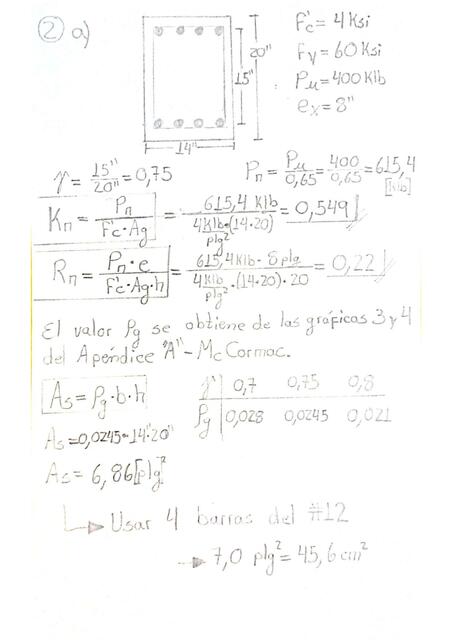 ② a)
F'c = 4 Ksi
Fy = 60 Ksi
Pu = 400 Klb
ex = 8"
15"
20"
14"
γ = 15"/20" = 0,75
Pn = Pu/0,65 = 400/0,65 = 615,4 [Klb]
Kn = Pn/(F'c·Ag) = 615,4 Klb/(4 Klb/plg²·(14·20)) = 0,549
Rn = Pn·e/(F'c·Ag·h) = 615,4 Klb·8 plg/(4 Klb/plg²·(14·20)·20) = 0,22
El valor ρg se obtiene de las gráficas 3 y 4
del Apéndice "A" - McCormac.
As = ρg·b·h
γ 0,7 0,75 0,8
ρg 0,028 0,0245 0,021
As = 0,0245·14"·20"
As = 6,86 [plg]²
Usar 4 barras del #12
7,0 plg² = 45,6 cm²